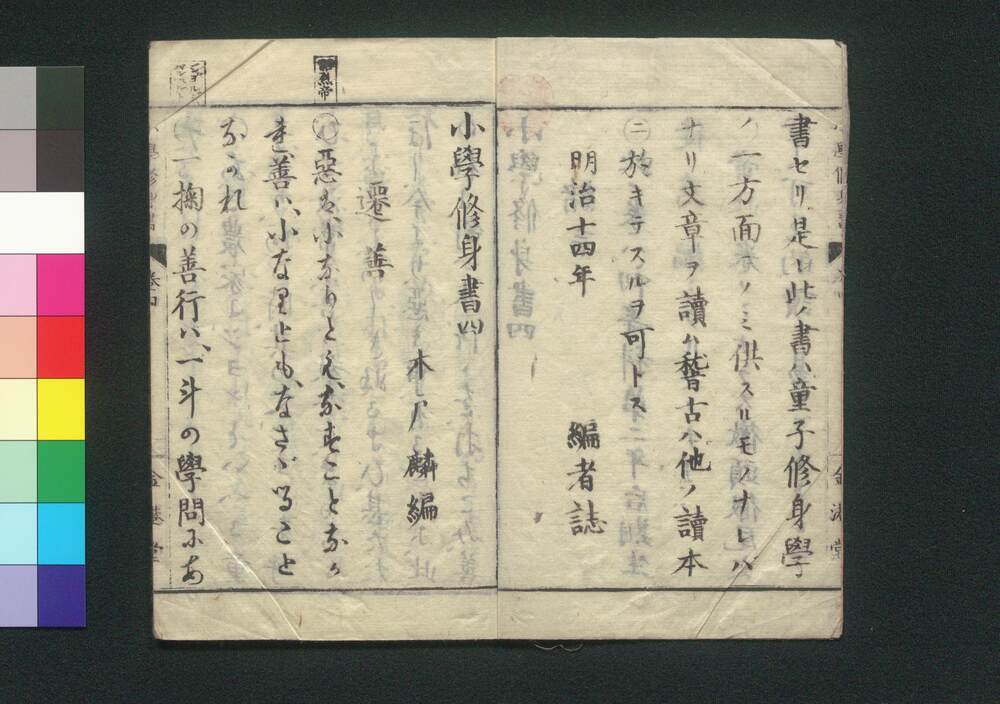 書セリ是レ此ノ書ハ童子修身學
ノ一方面ニノミ供スルモノナレハ
ナリ文章ヲ讀ハ稽古ハ他ノ讀本
ニ於キテスルヲ可トス
明治十四年
編者誌
小學修身書四
木戸麟編
遷善
昭烈帝
惡は小なりとも、なすことなか
れ善ハ小なりとも、なさゞることなかれ
一掬の善行ハ、一斗の學問にあ
金港堂